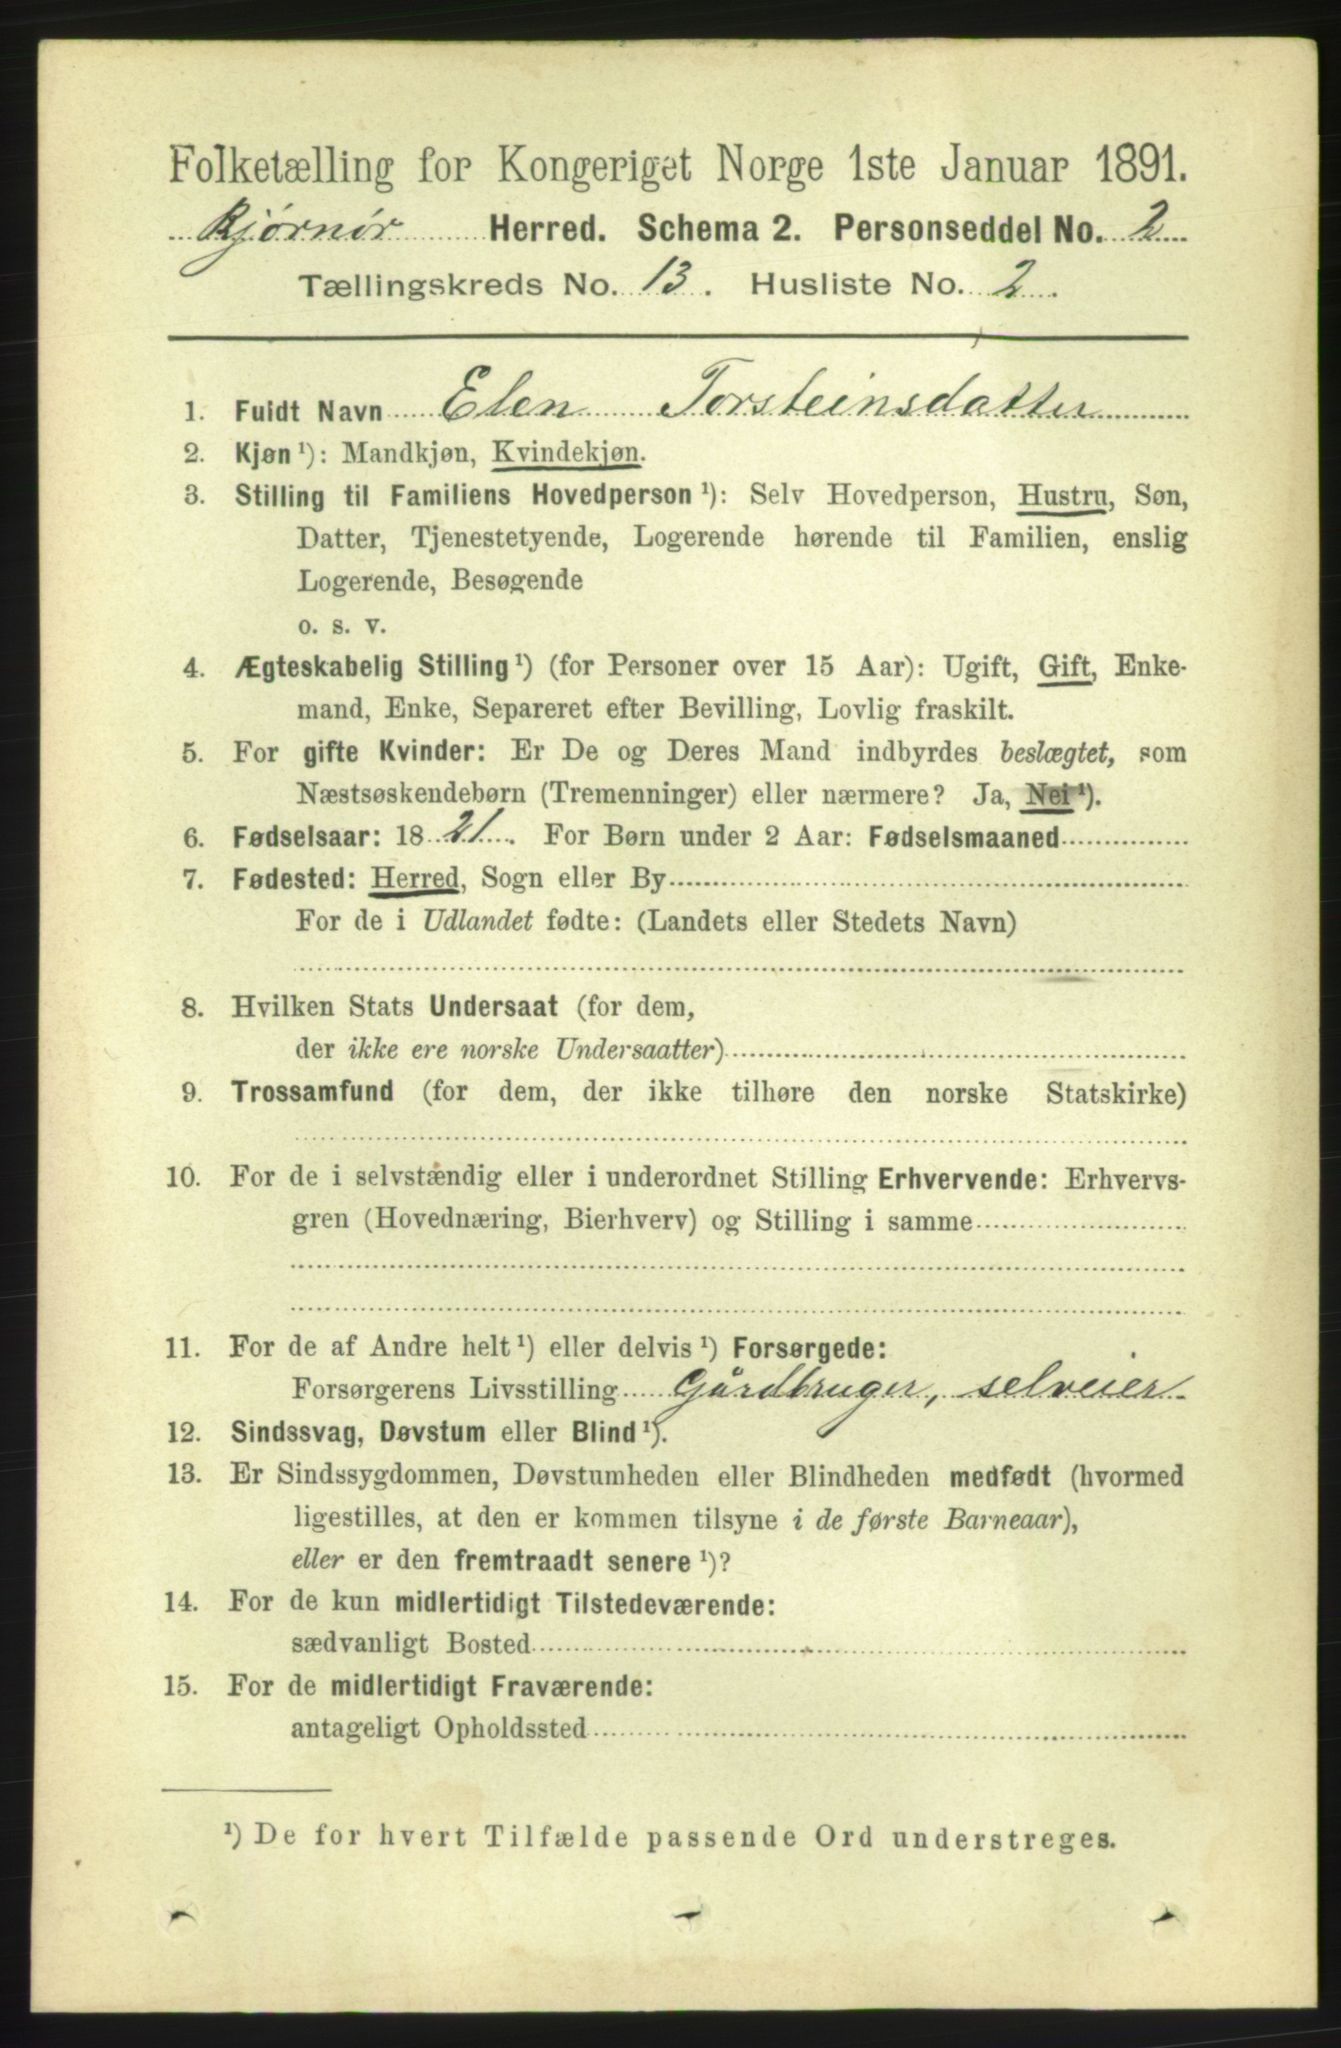 Folketælling for Kongeriget Norge 1ste Januar 1891.
Bjørnør Herred. Schema 2. Personseddel No. 2
Tællingskreds No. 13. Husliste No. 2.
1. Fuldt Navn Elen Torsteinsdatter
2. Kjøn ¹): Mandkjøn, Kvindekjøn.
3. Stilling til Familiens Hovedperson ¹): Selv Hovedperson, Hustru, Søn,
Datter, Tjenestetyende, Logerende hørende til Familien, enslig
Logerende, Besøgende
o. s. v.
4. Ægteskabelig Stilling ¹) (for Personer over 15 Aar): Ugift, Gift, Enke-
mand, Enke, Separeret efter Bevilling, Lovlig fraskilt.
5. For gifte Kvinder: Er De og Deres Mand indbyrdes beslægtet, som
Næstsøskendebørn (Tremenninger) eller nærmere? Ja, Nei ¹).
6. Fødselsaar: 1821. For Børn under 2 Aar: Fødselsmaaned
7. Fødested: Herred, Sogn eller By
For de i Udlandet fødte: (Landets eller Stedets Navn)
8. Hvilken Stats Undersaat (for dem,
der ikke ere norske Undersaatter)
9. Trossamfund (for dem, der ikke tilhøre den norske Statskirke)
10. For de i selvstændig eller i underordnet Stilling Erhvervende: Erhvervs-
gren (Hovednæring, Bierhverv) og Stilling i samme
11. For de af Andre helt ¹) eller delvis ¹) Forsørgede:
Forsørgerens Livsstilling Gårdbruger, selveier
12. Sindssvag, Døvstum eller Blind ¹).
13. Er Sindssygdommen, Døvstumheden eller Blindheden medfødt (hvormed
ligestilles, at den er kommen tilsyne i de første Barneaar),
eller er den fremtraadt senere ¹)?
14. For de kun midlertidigt Tilstedeværende:
sædvanligt Bosted
15. For de midlertidigt Fraværende:
antageligt Opholdssted
¹) De for hvert Tilfælde passende Ord understreges.